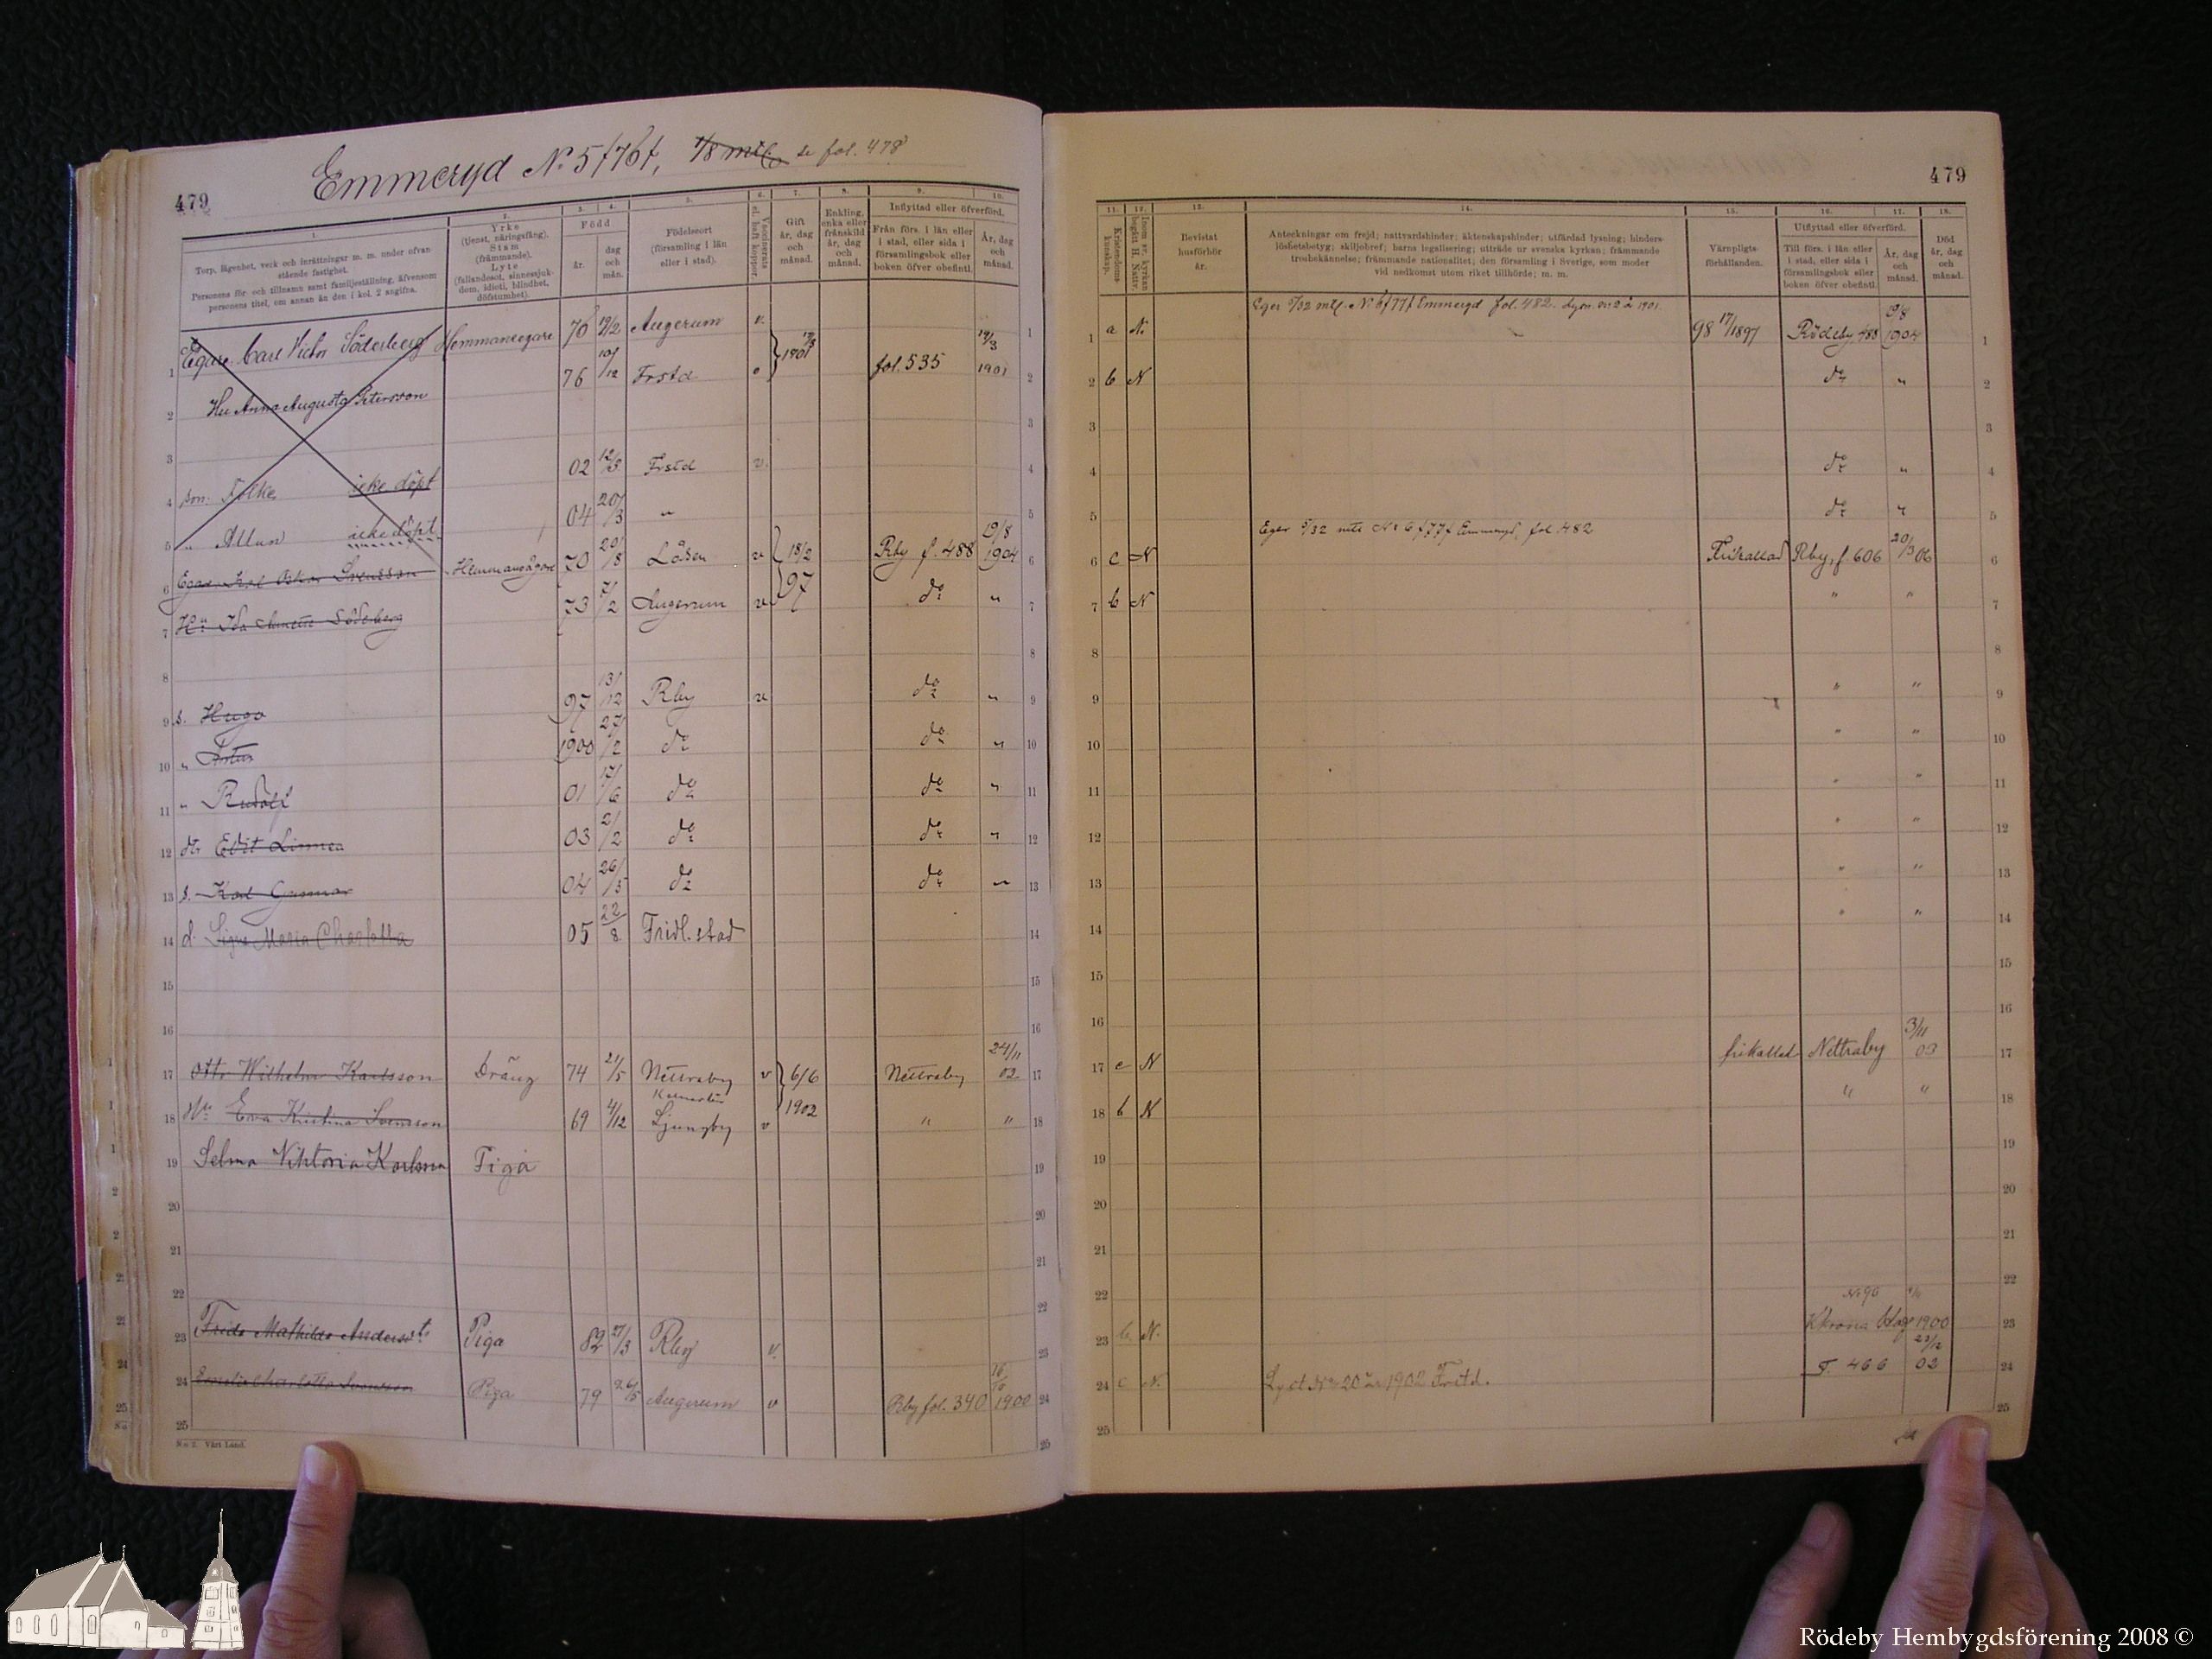 479
Emmeryd No 5 f 76 f, 1/8 mtl. se fol. 478
1. 2. 3. 4. 5. 6. 7. 8. 9. 10.
Torp, lägenhet, verk och inrättningar m. m. under ofvan stående fastighet.
Personens för- och tillnamn samt familjeställning, äfvensom personens titel, om annan än den i kol. 2 angifna.
Yrke (tjenst, näringsfång). Stam (främmande). Lyte (fallandesot, sinnessjukdom, idioti, blindhet, döfstumhet).
Född år. dag och mån.
Födelseort (församling i län eller i stad).
Vaccinerats el. haft koppor.
Gift år, dag och månad.
Enkling, enka eller frånskild år, dag och månad.
Inflyttad eller öfverförd. Från förs. i län eller i stad, eller sida i församlingsbok eller boken öfver obefintl. År, dag och månad.
1 Egare Carl Victor Söderberg Hemmansegare 70 19/2 Augerum v. 1901 19/3 1
2 Hu Anna Augusta Petersson 76 10/12 Frstd fol. 535 1901 2
3 3
4 son: Folke icke döpt 02 12/5 Frstd v. 4
5 " Allan icke döpt 04 20/3 " 5
6 Egar Oskar Svensson Hemmansägare 70 20/8 Lösen v 18/2 97 Rby f. 488 19/8 1904 6
7 Hu Ida Söderberg 73 7/2 Augerum v do " 7
8 8
9 s. Hugo 97 13/12 Rby v do " 9
10 " Artur 1900 27/2 do do " 10
11 " Rudolf 01 17/6 do do " 11
12 dtr Edit Linnea 03 2/2 do do " 12
13 s. Karl Gunnar 04 26/5 do do " 13
14 d. Signe Maria Charlotta 05 22/8 Fridl.stad 14
15 15
16 16
17 Otto Wilhelm Karlsson Dräng 74 21/5 Nettraby v 6/6 1902 Nettraby 24/11 02 17
18 Hu Eva Kristina Svensson 69 4/12 Ljungby v " " 18
19 Selma Viktoria Karlsson Piga 19
20 20
21 21
22 22
23 Frida Mathilda Anderss. Piga 82 27/3 Rby v. 23
24 Emelie Charlotta Svensson Piga 79 26/5 Augerum v Rby fol. 340 16/10 1900 24
25 25
N:o 2. Vårt Land.
479
11. 12. 13. 14. 15. 16. 17. 18.
Kristendomskunskap.
Inom sv. kyrkan begått H. Nattv.
Bevistat husförhör år.
Anteckningar om frejd; nattvardshinder; äktenskapshinder; utfärdad lysning; hinderslöshetsbetyg; skiljobref; barns legalisering; utträde ur svenska kyrkan; främmande trosbekännelse; främmande nationalitet; den församling i Sverige, som moder vid nedkomst utom riket tillhörde; m. m.
Värnpligtsförhållanden.
Utflyttad eller öfverförd. Till förs. i län eller i stad, eller sida i församlingsbok eller boken öfver obefintl. År, dag och månad.
Död år, dag och månad.
Eger 5/32 mtl. No 6 f 77 f Emmeryd fol. 482. Lysn. no 2 år 1901.
1 a N 98 17/1897 Rödeby 488 19/8 1904 1
2 b N do " 2
3 3
4 do " 4
5 do " 5
Eger 5/32 mtl No 6 f 77 f Emmeryd, fol. 482
6 c N Frikallad Rby, f. 606 20/3 06 6
7 b N " " 7
8 8
9 " " 9
10 " " 10
11 " " 11
12 " " 12
13 " " 13
14 " " 14
15 15
16 16
17 c N frikallad Nettraby 3/11 03 17
18 b N " " 18
19 19
20 20
21 21
22 No 90 22
23 b. N. Kkrona 1900 23
24 c N. Lyst No 20 år 1902 Frstd. F. 466 22/12 02 24
25 25
Rödeby Hembygdsförening 2008 ©